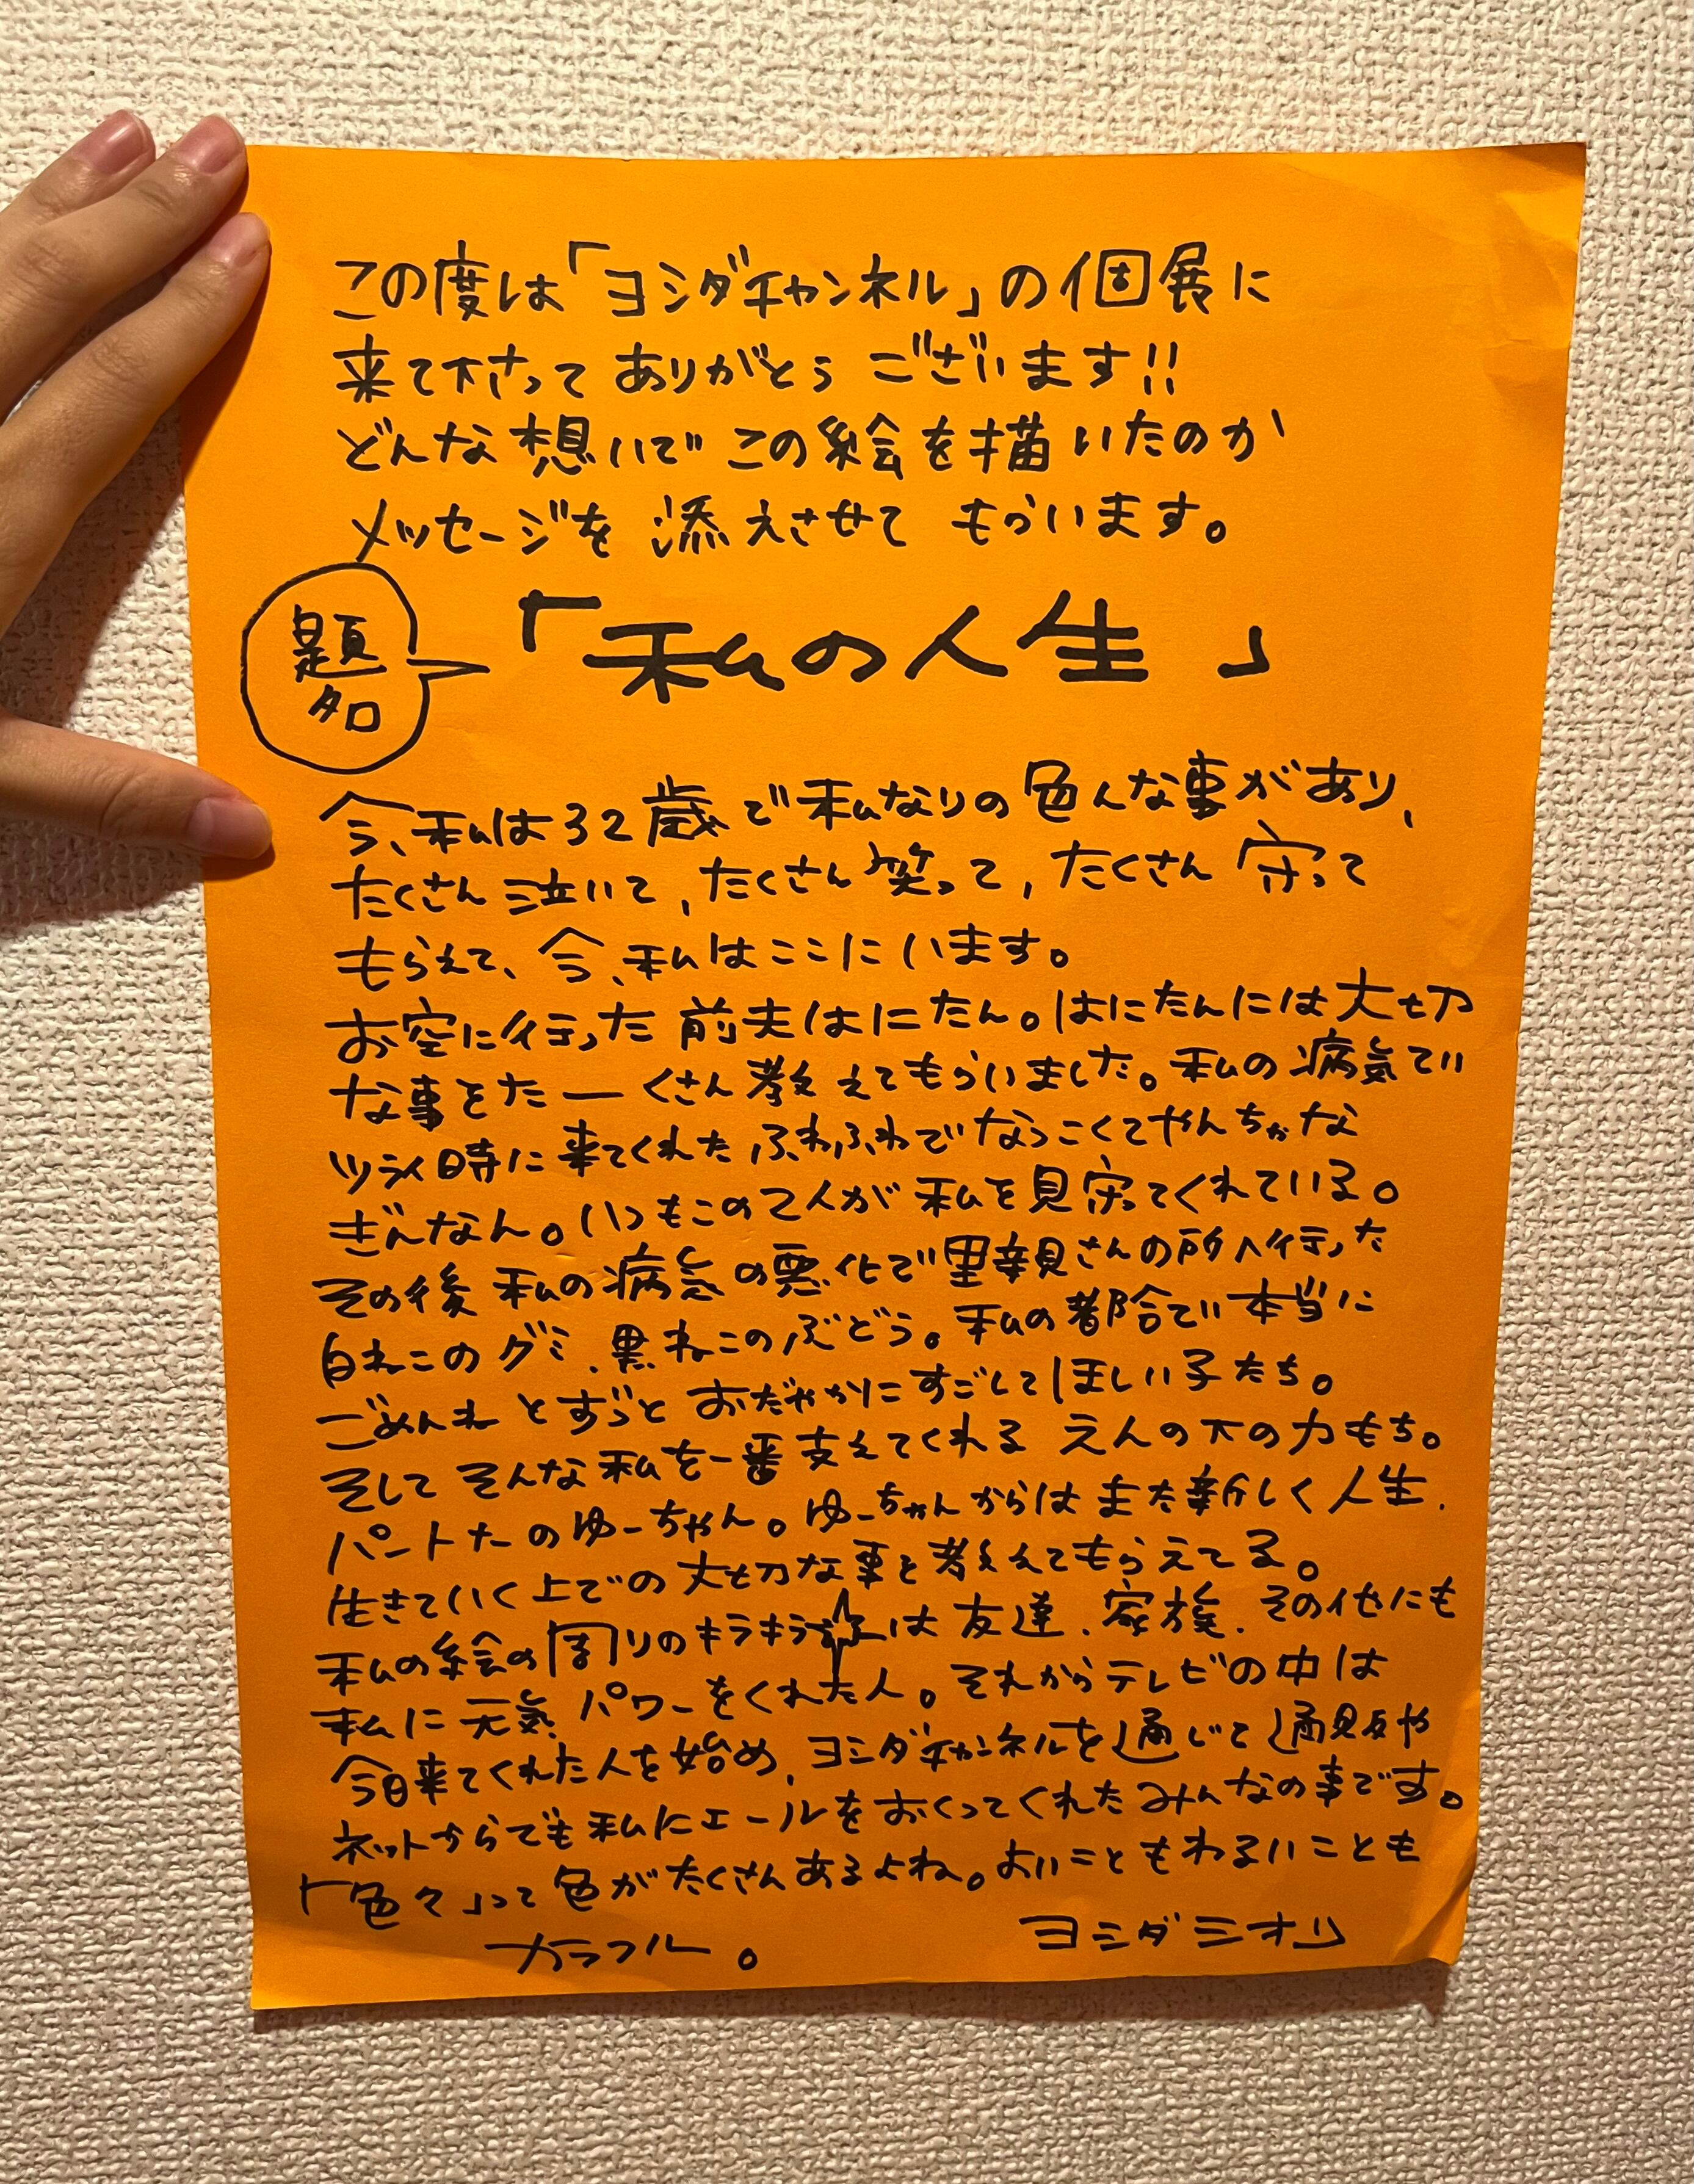 この度は「ヨシダチャンネル」の個展に
来て下さって ありがとう ございます!!
どんな想いで この絵を描いたのか
メッセージを 添えさせて もらいます。
題名
「私の人生」
今、私は32歳で私なりの色んな事があり、
たくさん泣いて、たくさん笑って、たくさん守って
もらえて、今、私はここにいます。
お空に行った前夫はにたん。はにたんには大切
な事をたーくさん教えてもらいました。私の病気で
ツライ時に来てくれたふわふわでなつこくてやんちゃな
ぎんなん。いつもこの2人が私を見守ってくれている。
その後 私の病気の悪化で里親さんの所へ行った
白ねこのグミ、黒ねこのぶどう。私の都合で本当に
ごめんね とずっと おだやかにすごしてほしい子たち。
そして そんな私を一番支えてくれる えんの下の力もち。
パートナーのゆーちゃん。ゆーちゃんからはまた新しく人生、
生きていく上での大切な事を教えてもらえてる。
私の絵の周りのキラキラ は 友達、家族、その他にも
私に元気、パワーをくれた人。それからテレビの中は
今日来てくれた人を始め、ヨシダチャンネルを通じて通販や
ネットからでも私にエールをおくってくれたみんなの事です。
「色々」って色がたくさんあるよね。よいこともわるいことも
カラフル。
ヨシダシオリ